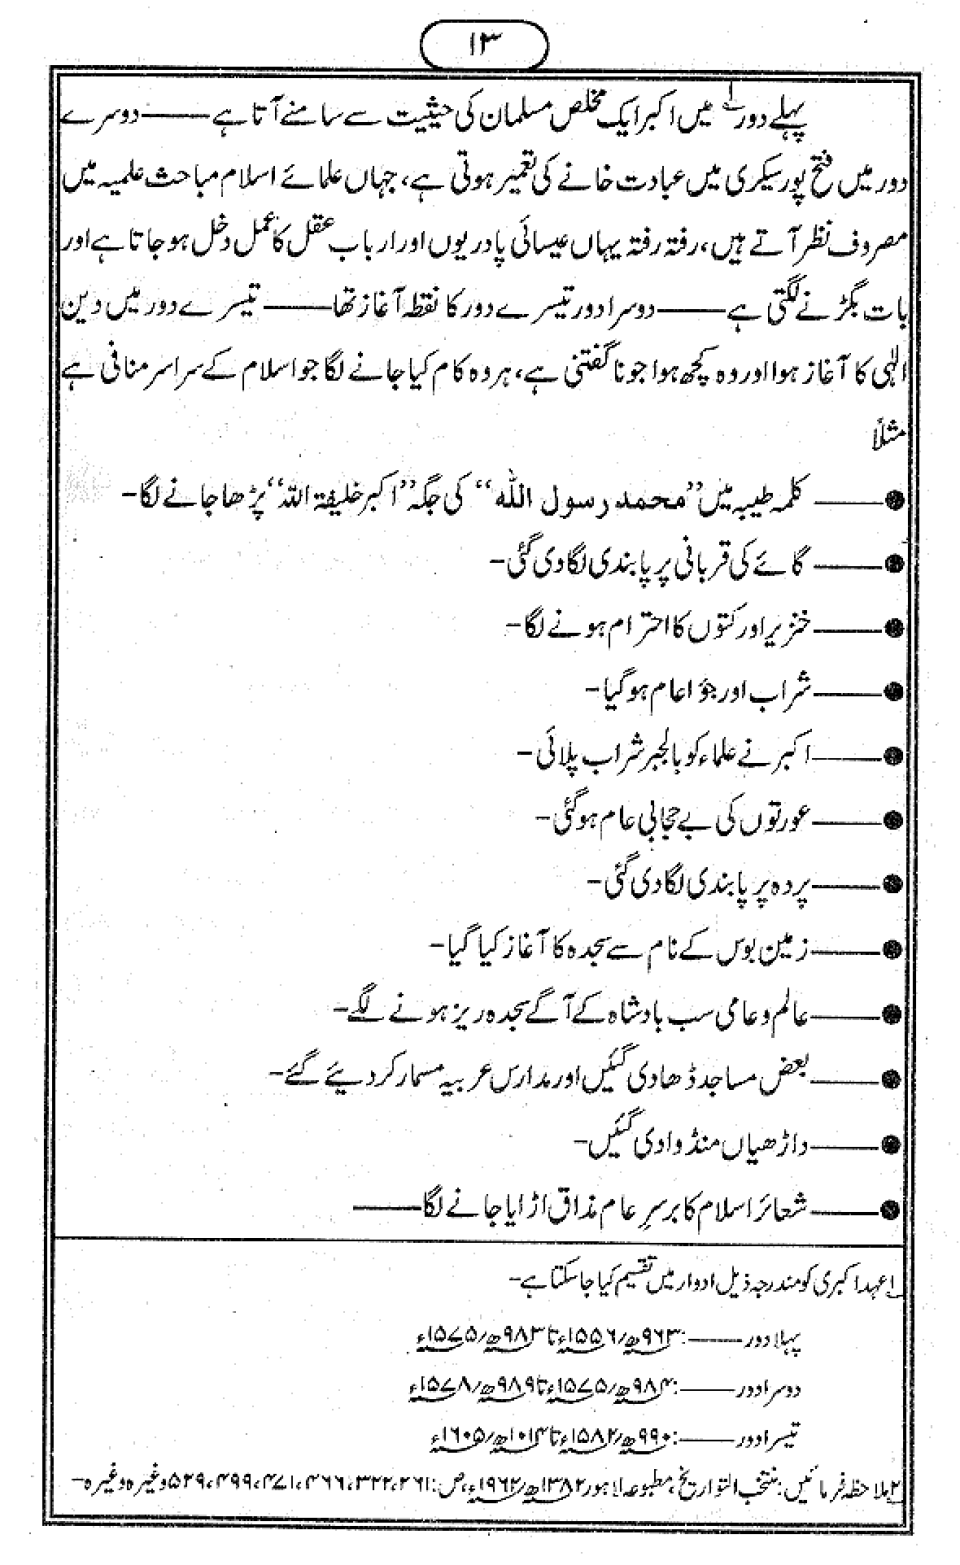 ۱۳
پہلے دور۱؎ میں اکبر ایک مخلص مسلمان کی حیثیت سے سامنے آتا ہے ——— دوسرے
دور میں فتح پور سیکری میں عبادت خانے کی تعمیر ہوتی ہے، جہاں علمائے اسلام مباحث علمیہ میں
مصروف نظر آتے ہیں، رفتہ رفتہ یہاں عیسائی پادریوں اور ارباب عقل کا عمل دخل ہو جاتا ہے اور
بات بگڑنے لگتی ہے ——— دوسرا دور تیسرے دور کا نقطہ آغاز تھا ——— تیسرے دور میں دین
الٰہی کا آغاز ہوا اور وہ کچھ ہوا جو ناگفتنی ہے، ہر وہ کام کیا جانے لگا جو اسلام کے سراسر منافی ہے
مثلاً
● ——— کلمہ طیبہ میں ”محمد رسول اللہ“ کی جگہ ”اکبر خلیفۃ اللہ“ پڑھا جانے لگا۔
● ——— گائے کی قربانی پر پابندی لگا دی گئی۔
● ——— خنزیر اور کتوں کا احترام ہونے لگا۔
● ——— شراب اور جؤا عام ہو گیا۔
● ——— اکبر نے علماء کو بالجبر شراب پلائی۔
● ——— عورتوں کی بے حجابی عام ہو گئی۔
● ——— پردہ پر پابندی لگا دی گئی۔
● ——— زمین بوس کے نام سے سجدہ کا آغاز کیا گیا۔
● ——— عالم و عامی سب بادشاہ کے آگے سجدہ ریز ہونے لگے۔
● ——— بعض مساجد ڈھا دی گئیں اور مدارس عربیہ مسمار کر دیئے گئے۔
● ——— داڑھیاں منڈوا دی گئیں۔
● ——— شعائر اسلام کا برسرِ عام مذاق اڑایا جانے لگا ———
۱؎ عہد اکبری کو مندرجہ ذیل ادوار میں تقسیم کیا جا سکتا ہے۔
پہلا دور ———: ۹۶۳ھ/۱۵۵۶ء تا ۹۸۳ھ/۱۵۷۵ء
دوسرا دور ———: ۹۸۴ھ/۱۵۷۵ء تا ۹۸۹ھ/۱۵۷۸ء
تیسرا دور ———: ۹۹۰ھ/۱۵۸۲ء تا ۱۰۱۴ھ/۱۶۰۵ء
۲؎ ملاحظہ فرمائیں: منتخب التواریخ، مطبوعہ لاہور ۱۳۸۲ھ/۱۹۶۲ء، ص: ۲۶۱، ۳۲۲، ۴۶۶، ۴۷۱، ۴۹۹، ۵۲۹ وغیرہ وغیرہ۔